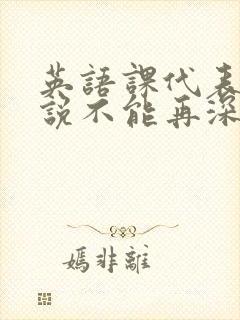 英語課代表
說不能再深
嫣非離